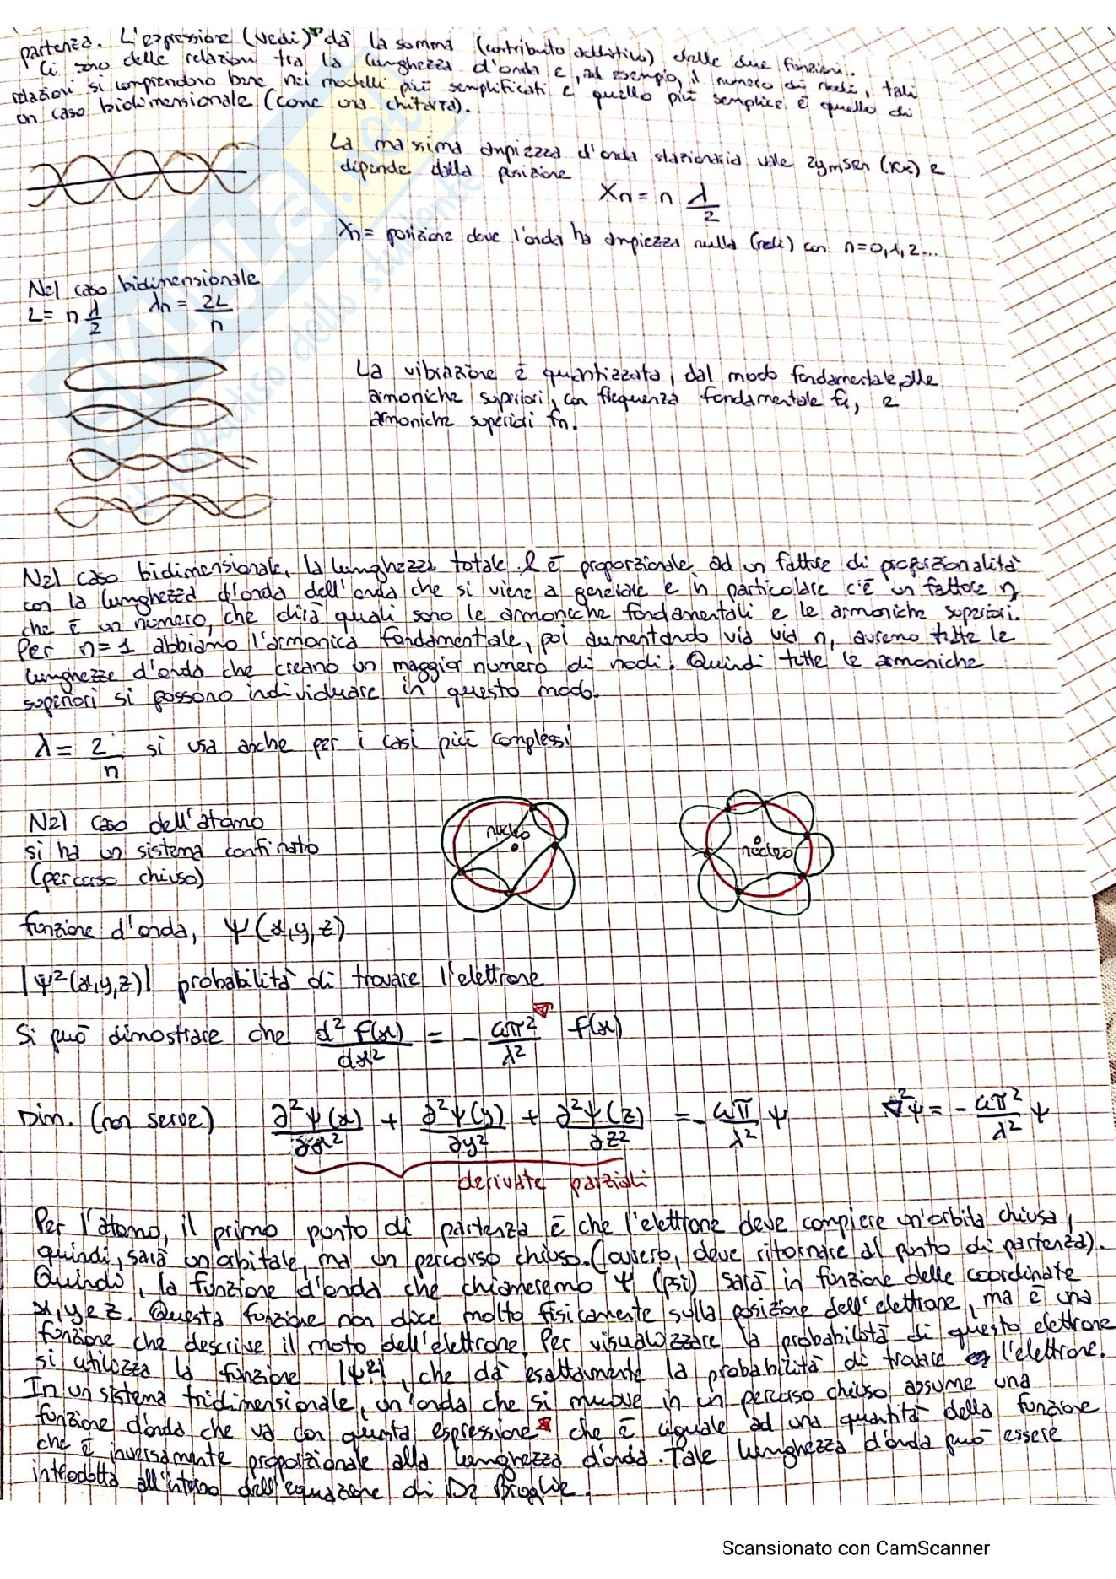 partenza. L'espressione (vedi)* dà la somma (contributo additivo) delle due funzioni.
Ci sono delle relazioni tra la lunghezza d'onda e, ad esempio, il numero di nodi, tali
relazioni si comprendono bene nei modelli più semplificati e quello più semplice è quello di
un caso bidimensionale (come una chitarra).
La massima ampiezza d'onda stazionaria vale 2ymsen (kx) e
dipende dalla posizione
Xn = n λ/2
Xn = posizione dove l'onda ha ampiezza nulla (nodi) con n=0,1,2...
Nel caso bidimensionale
L = n λ/2 λn = 2L/n
La vibrazione è quantizzata, dal modo fondamentale, alle
armoniche superiori, con frequenza fondamentale f1, e
armoniche superiori fn.
Nel caso bidimensionale, la lunghezza totale l è proporzionale ad un fattore di proporzionalità
con la lunghezza d'onda dell'onda che si viene a generare e in particolare c'è un fattore n
che è un numero, che dirà quali sono le armoniche fondamentali e le armoniche superiori.
Per n=1 abbiamo l'armonica fondamentale, poi aumentando via via n, avremo tutte le
lunghezze d'onda che creano un maggior numero di nodi. Quindi tutte le armoniche
superiori si possono individuare in questo modo.
λ = 2/n si usa anche per i casi più complessi
Nel caso dell'atomo
si ha un sistema confinato
(percorso chiuso)
nucleo
nucleo
funzione d'onda, Ψ(x,y,z)
|Ψ²(x,y,z)| probabilità di trovare l'elettrone
Si può dimostrare che d² f(x)/dx² = - 4π²/λ² f(x)
Dim. (non serve) ∂²Ψ(x)/∂x² + ∂²Ψ(y)/∂y² + ∂²Ψ(z)/∂z² = - 4π/λ² Ψ ∇²Ψ = - 4π²/λ² Ψ
derivate parziali
Per l'atomo, il primo punto di partenza è che l'elettrone deve compiere un'orbita chiusa,
quindi, sarà un orbitale, ma un percorso chiuso. (ovvero, deve ritornare al punto di partenza).
Quindi, la funzione d'onda che chiameremo Ψ (psi) sarà in funzione delle coordinate
x, y e z. Questa funzione non dice molto fisicamente sulla posizione dell'elettrone, ma è una
funzione che descrive il moto dell'elettrone. Per visualizzare la probabilità di questo elettrone
si utilizza la funzione |Ψ²|, che dà esattamente la probabilità di trovare l'elettrone.
In un sistema tridimensionale, un'onda che si muove in un percorso chiuso assume una
funzione d'onda che va con questa espressione che è uguale ad una quantità della funzione
che è inversamente proporzionale alla lunghezza d'onda. Tale lunghezza d'onda può essere
introdotta all'interno dell'equazione di De Broglie.
Scansionato con CamScanner